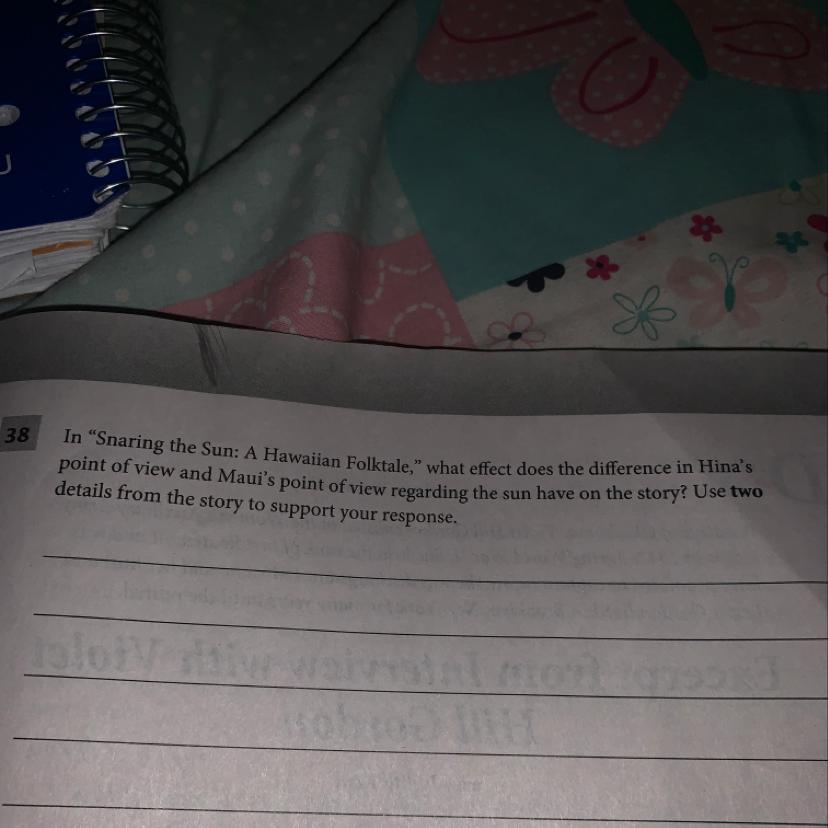 38 In “Snaring the Sun: A Hawaiian Folktale,” what effect does the difference in Hina’s
point of view and Maui’s point of view regarding the sun have on the story? Use two
details from the story to support your response.
Excerpt from Interview with Violet
Hill Gordon